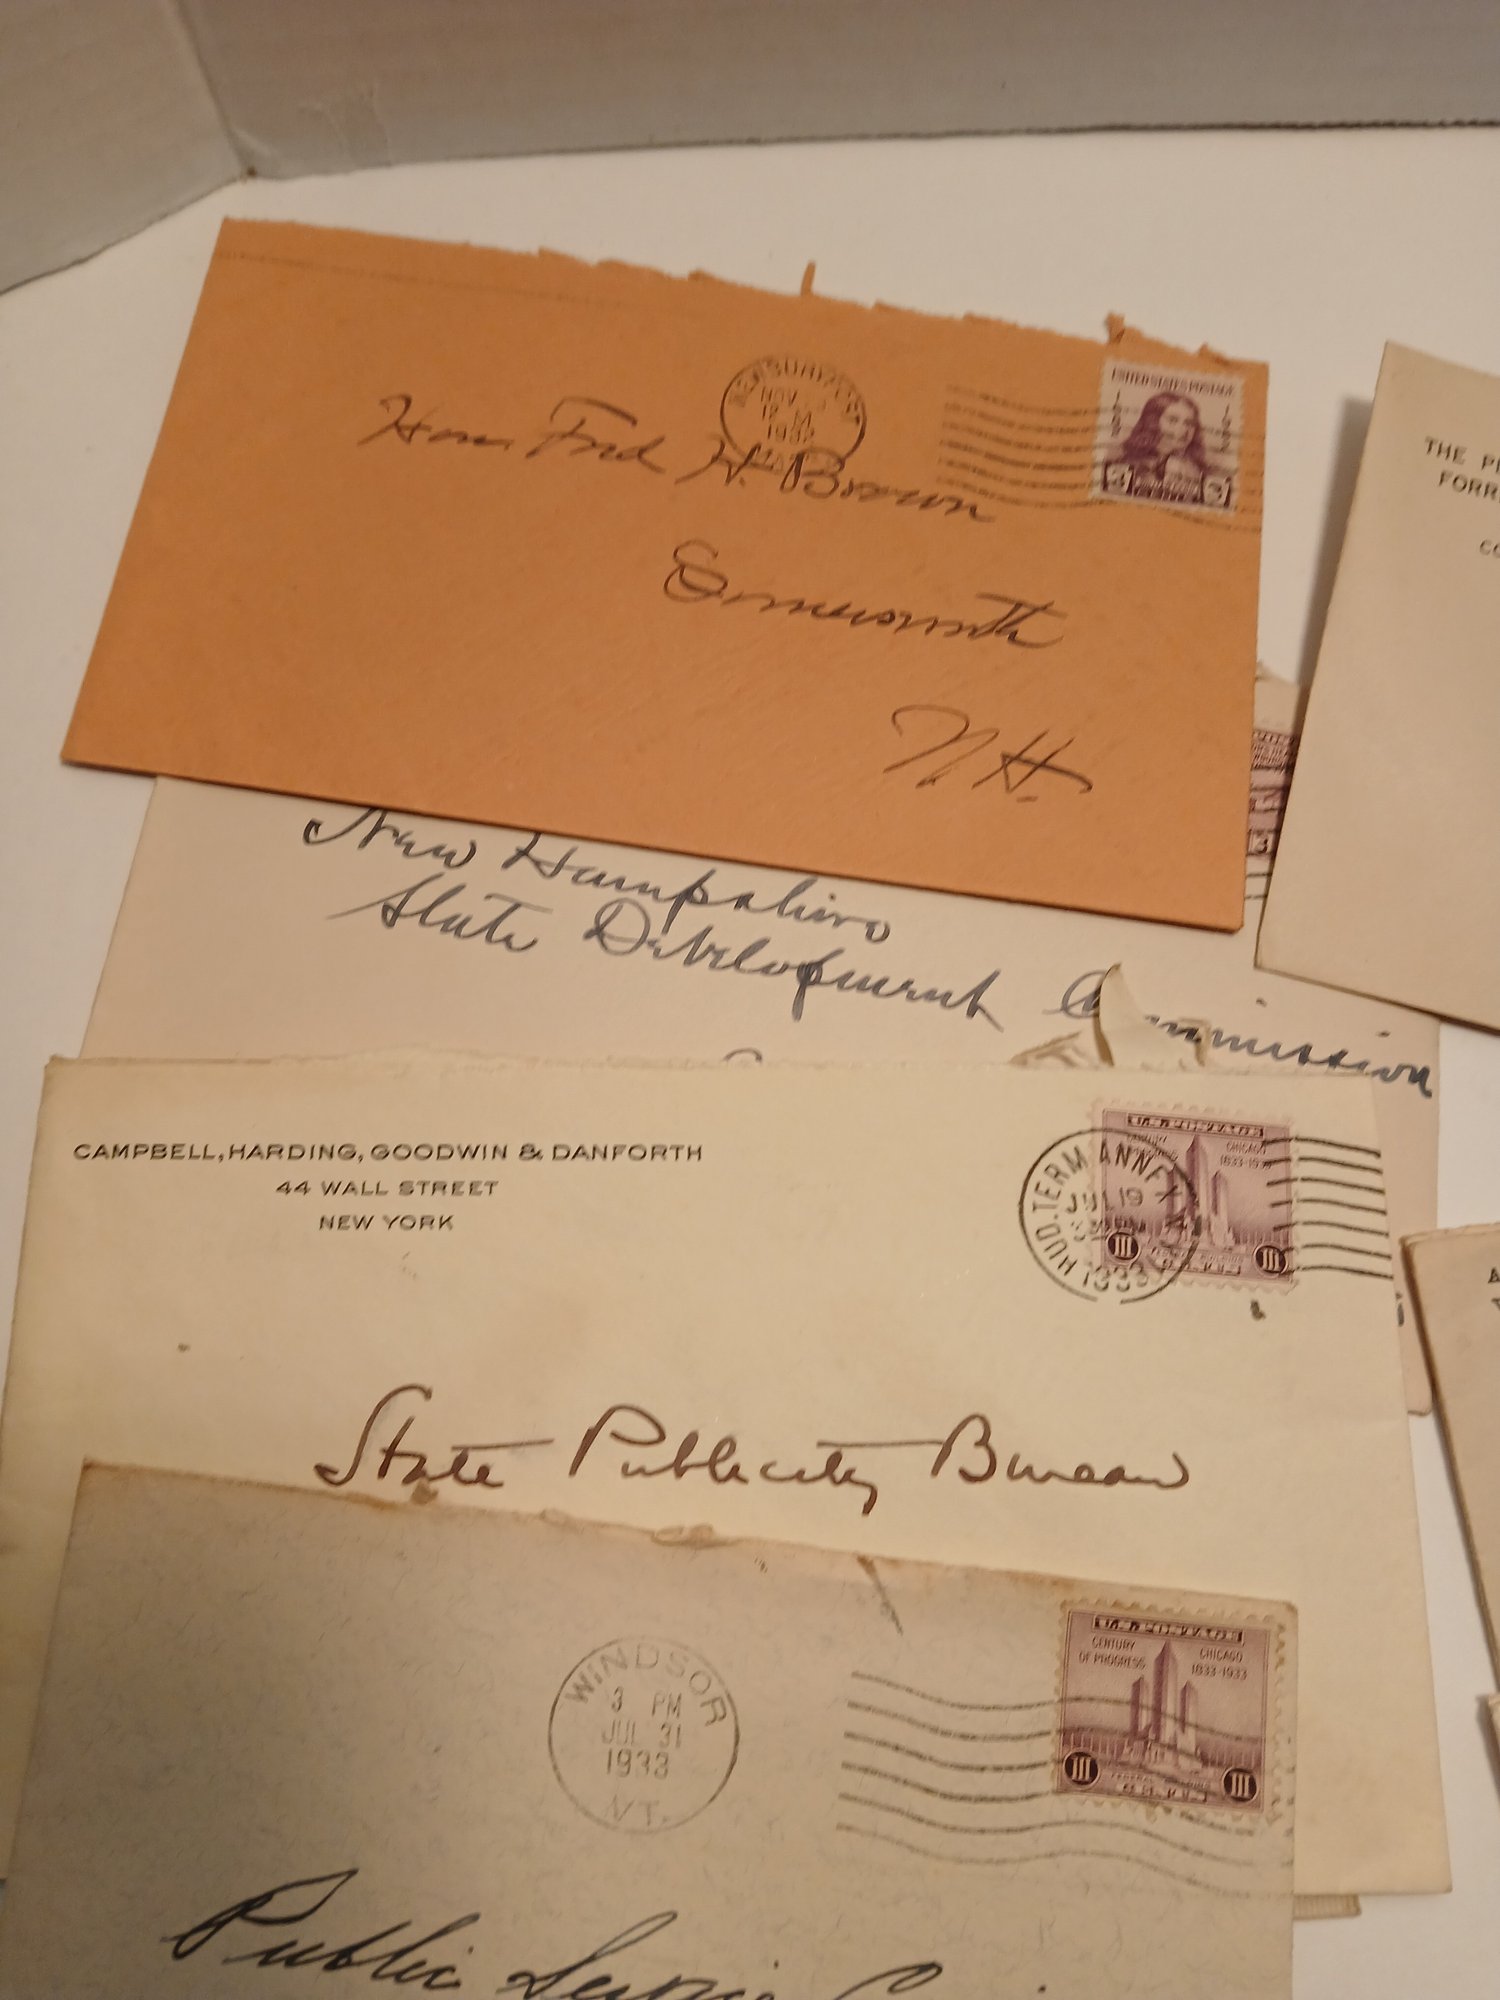 NEWBURYPORT
NOV
12 M
1932
MASS
UNITED STATES POSTAGE
1682
1932
3
3
Hon. Fred H. Brown
Somersworth
N. H.
THE P
FORR
CO
3
New Hampshire
State Development Commission
CAMPBELL, HARDING, GOODWIN & DANFORTH
44 WALL STREET
NEW YORK
HUD. TERM ANNEX
JUL 19
1933
N.Y.
U.S. POSTAGE
CENTURY
OF PROGRESS
CHICAGO
1833-1933
III
III
FEDERAL BUILDING
State Publicity Bureau
WINDSOR
3 PM
JUL 31
1933
VT.
U.S. POSTAGE
CENTURY
OF PROGRESS
CHICAGO
1833-1933
III
III
FEDERAL BUILDING
Public Service